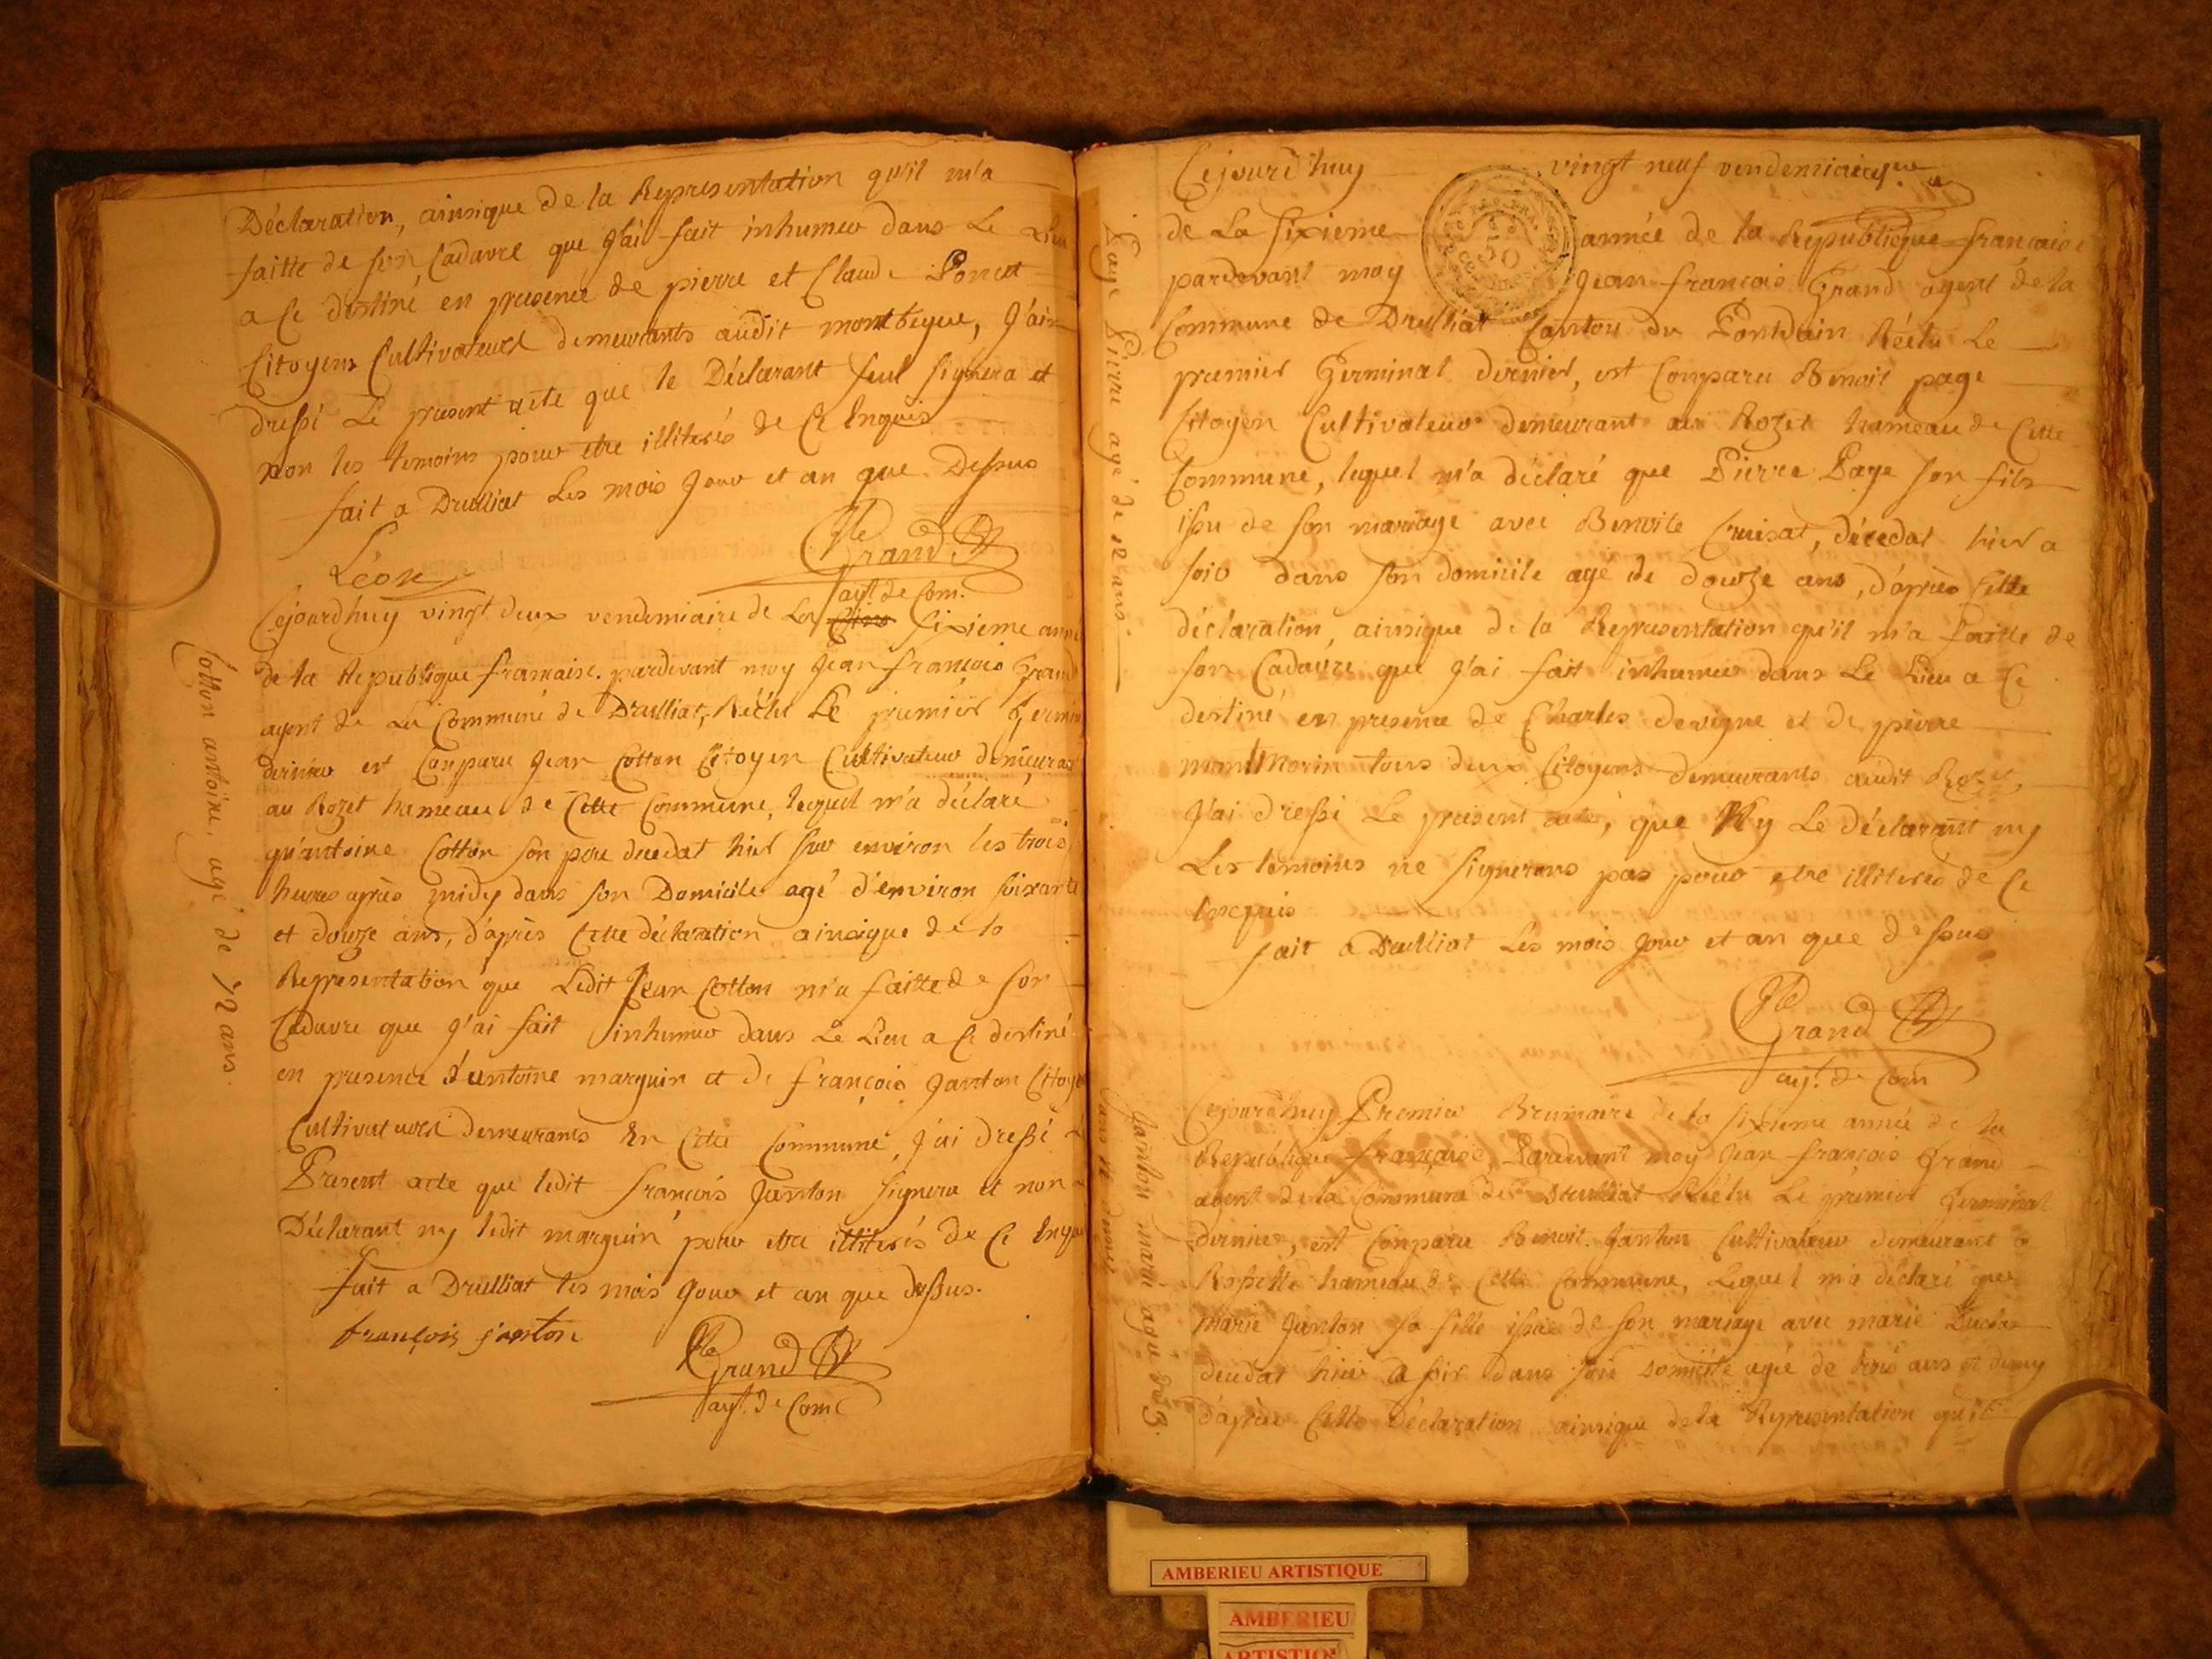 Déclaration, ainsique de la Representation qu'il m'a
faitte de son Cadavre que J'ai fait inhumer dans Le Lieu
a Ce destiné en presence de pierre et Claude Poncet
Citoyens Cultivateurs demeurants audit montbegue, J'ai
dressé Le present acte que le Déclarant seul signera et
non les temoins pour etre illiterés de Ce Enquis
fait a Drulliat Les mois Jour et an que Dessus
Léon
Grand
agt de Com.
Cejourd'huy vingt deux vendemiaire de La sixieme anné
de la Republique francaise. pardevant moy Jean francois Grand
agent de La Commune de Drulliat, Réélu Le premier Germin
dernier est Comparu Jean Cotton Citoyen Cultivateur demeurant
au Rozet hameau de Cette Commune, lequel m'a déclaré
qu'antoine Cotton son pere decedat hier sur environ les trois
heures après midy dans son Domicile agé d'environ soixante
et douze ans, d'après Cette déclaration ainsique de la
Representation que Ledit Jean Cotton m'a faitte de son
Cadavre que J'ai fait inhumer dans Le Lieu a Ce destiné
en presence d'antoine marguin et de francois Janton Citoye
Cultivateurs demeurants En Cette Commune, J'ai dressé
Present acte que ledit francois Janton signera et non
Déclarant ny ledit marguin pour etre illiterés de Ce Enqu
fait a Drulliat les mois Jour et an que dessus.
françois janton
Grand
agt. de Com
Cotton antoine, agé de 72 ans.
Cejourd'huy vingt neuf vendemiaire
de La sixieme année de la Republique francaise
pardevant moy Jean francois Grand agent de la
Commune de Drulliat Canton du Pontdain Réélu Le
premier Germinal dernier, est Comparu Benoit page
Citoyen Cultivateur demeurant au Rozet hameau de Cette
Commune, lequel m'a déclaré que Pierre Page son fils
issu de son mariage avec Benoite Cruisat, décedat hier a
soir dans son domicile agé de douze ans, d'après Cette
déclaration, ainsique de la Representation qu'il m'a faitte de
son Cadavre que J'ai fait inhumer dans Le Lieu a Ce
destiné en presence de Charles devigne et de pierre
morin tous deux Citoyens demeurants audit Rozet
J'ai dressé Le present acte, que Ny Le déclarant ny
Les temoins ne signerons pas pour etre illiterés de Ce
Enquis
fait a Drulliat Les mois Jour et an que dessus
Grand
agt. de Com
Page Pierre agé de 12 ans.
Cejourd'huy Premier Brumaire de la sixieme année de la
Republique francaise, Pardevant moy Jean francois Grand
agent de la Commune de Drulliat Réélu Le premier Germinal
dernier, est Comparu Benoit Janton Cultivateur demeurant a
Rossette hameau de Cette Commune, Lequel m'a déclaré que
Marie Janton sa fille issue de son mariage avec marie
decedat hier a soir dans son domicile agé de trois ans et demy
d'après Cette Déclaration ainsique de la Representation qu'il
Janton marie agée de 3
ans et demis
AMBERIEU ARTISTIQUE
AMBERIEU
ARTISTIQ